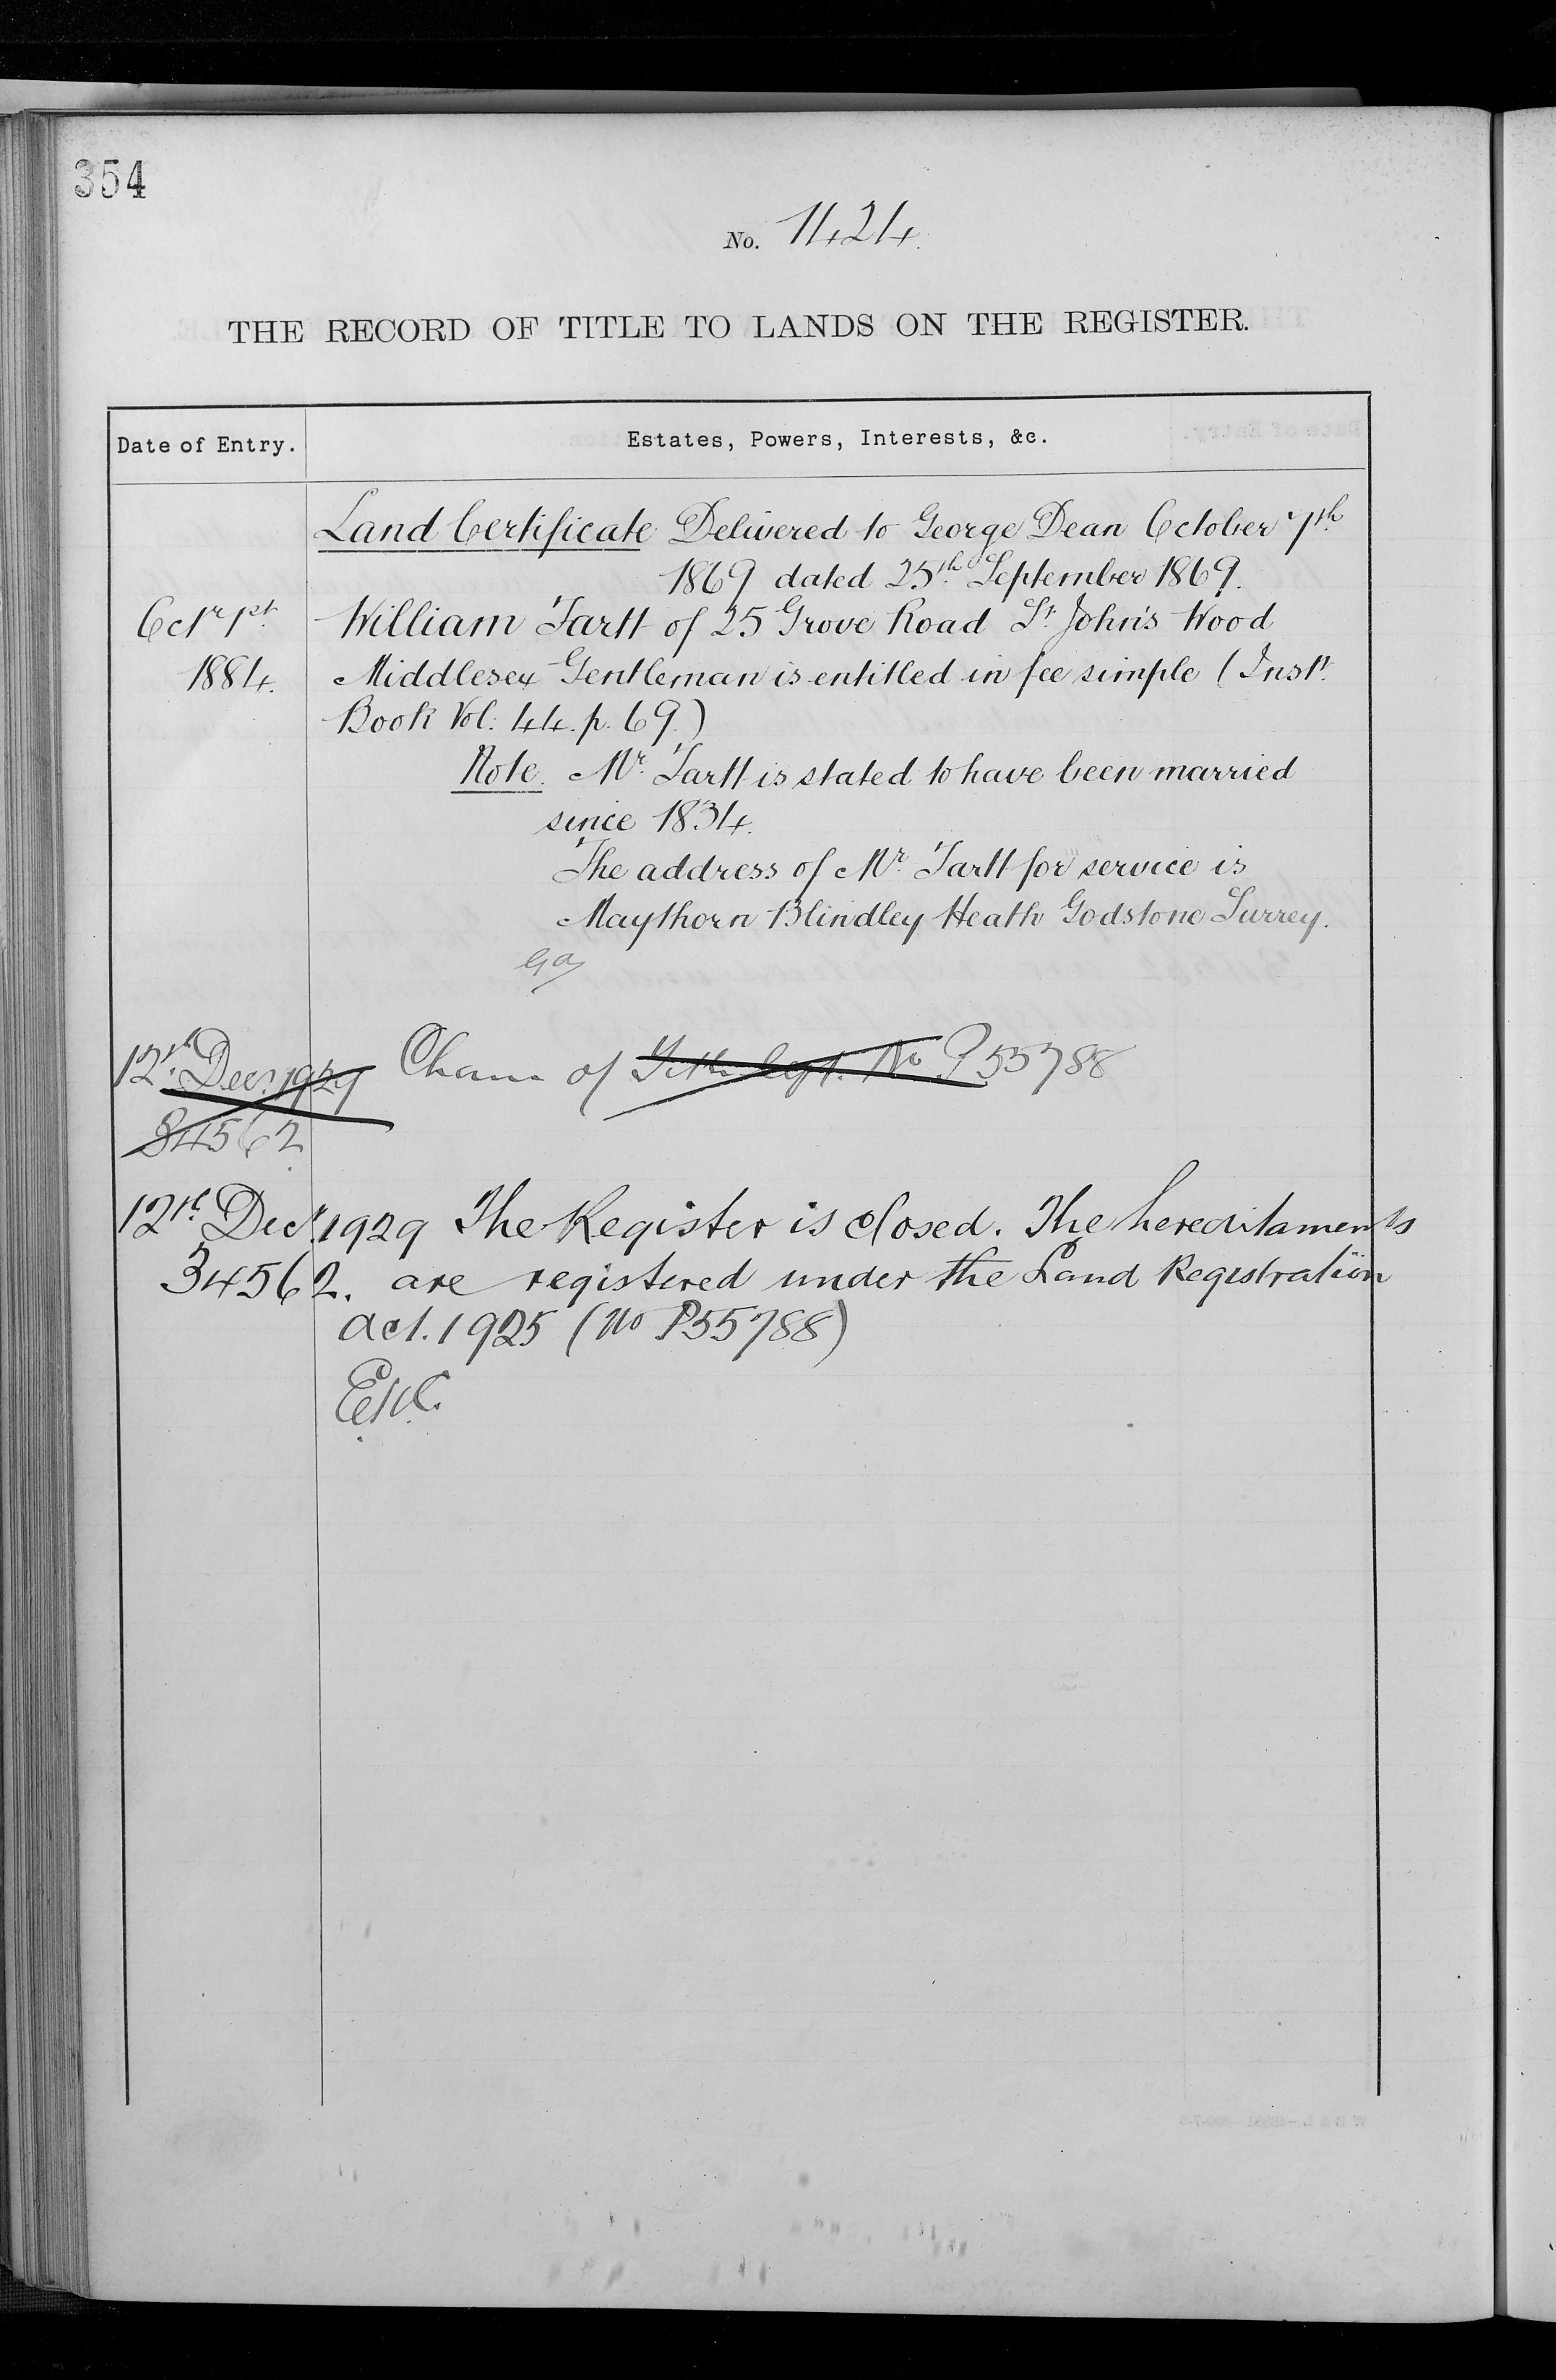 354
No. 1424.
THE RECORD OF TITLE TO LANDS ON THE REGISTER.
Date of Entry. Estates, Powers, Interests, &c.
Land Certificate Delivered to George Dean October 7th
1869 dated 25th September 1869.
Octr 1st William Tartt of 25 Grove Road St John's Wood
1884. Middlesex Gentleman is entitled in fee simple (Instt
Book Vol: 44. p. 69.)
Note. Mr Tartt is stated to have been married
since 1834.
The address of Mr Tartt for service is
Maythorn Blindley Heath Godstone Surrey.
12th Decr. 1929 of No P55788
34562
12th Decr. 1929 The Register is closed. The hereditaments
34562. are registered under the Land Registration
Act. 1925 (No P55788)